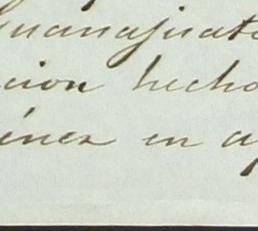 Guanajuato
cion hecho
énez en a